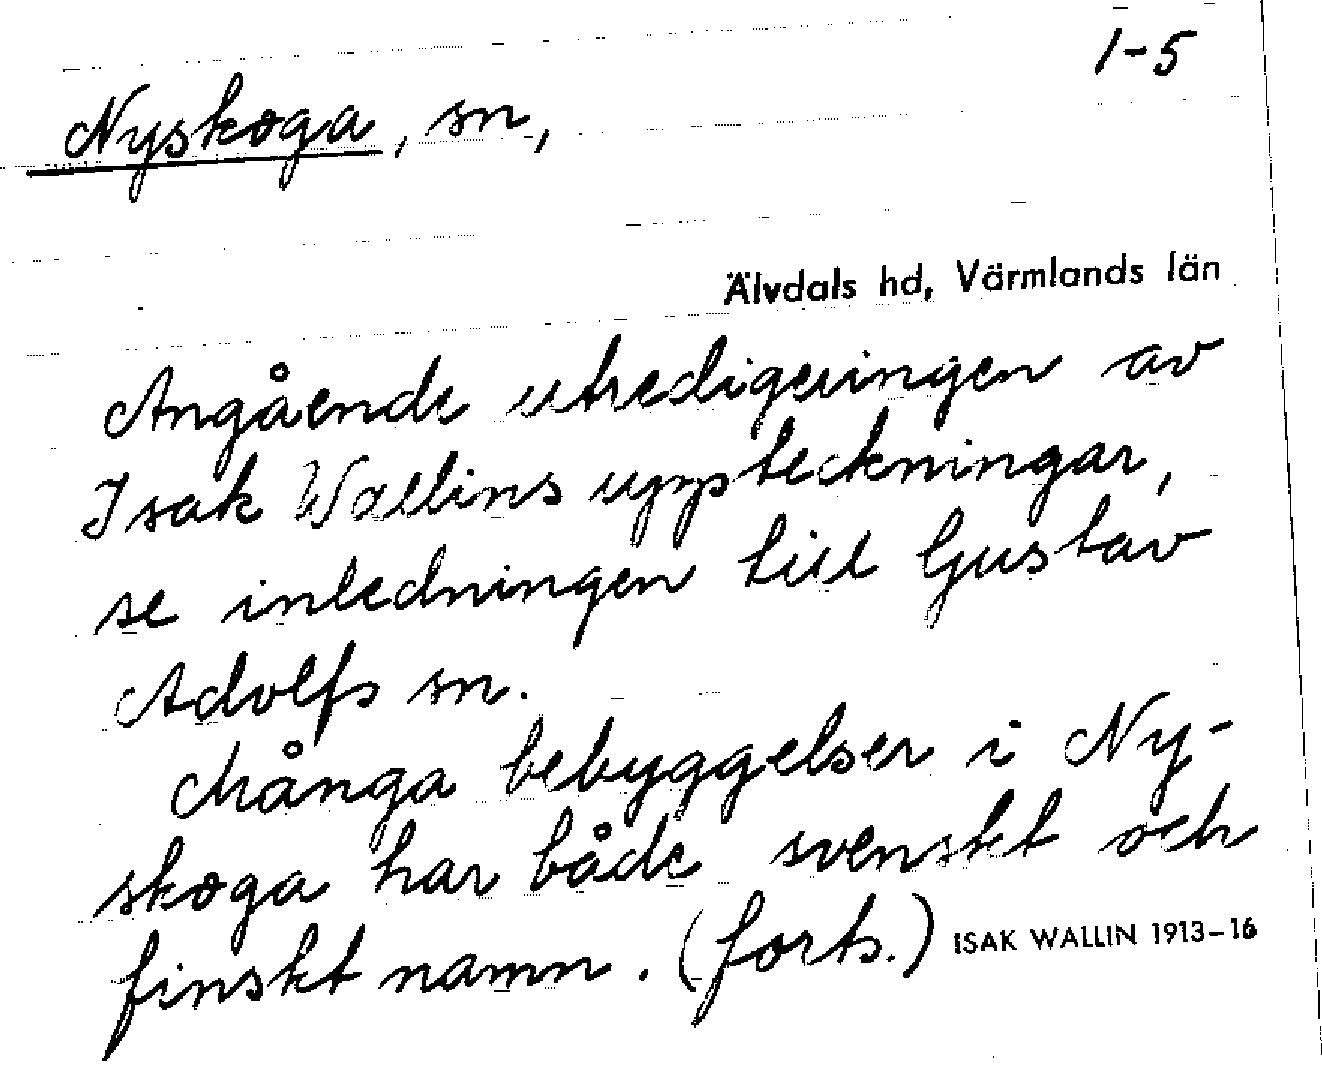 1-5
Nyskoga, sn,
Älvdals hd, Värmlands län
Angående utredigeringen av
Isak Wallins uppteckningar,
se inledningen till Gustav
Adolfs sn.
Många bebyggelser i Ny-
skoga har både svenskt och
finskt namn. (forts.)
ISAK WALLIN 1913–16